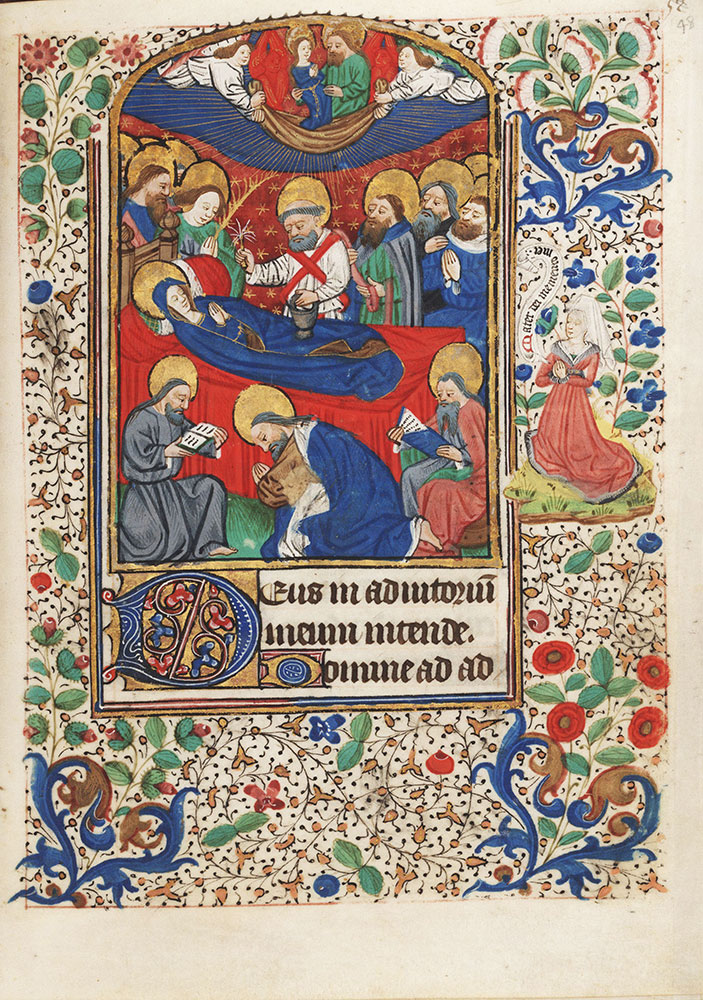 58
48
Mater dei memento
mei
Deus in adiutoriū
meum intende.
Domine ad ad